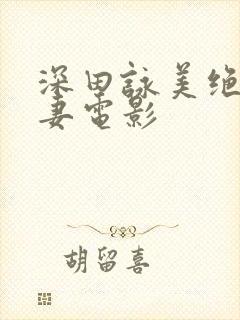 深田詠美绝
妻電影
胡留喜